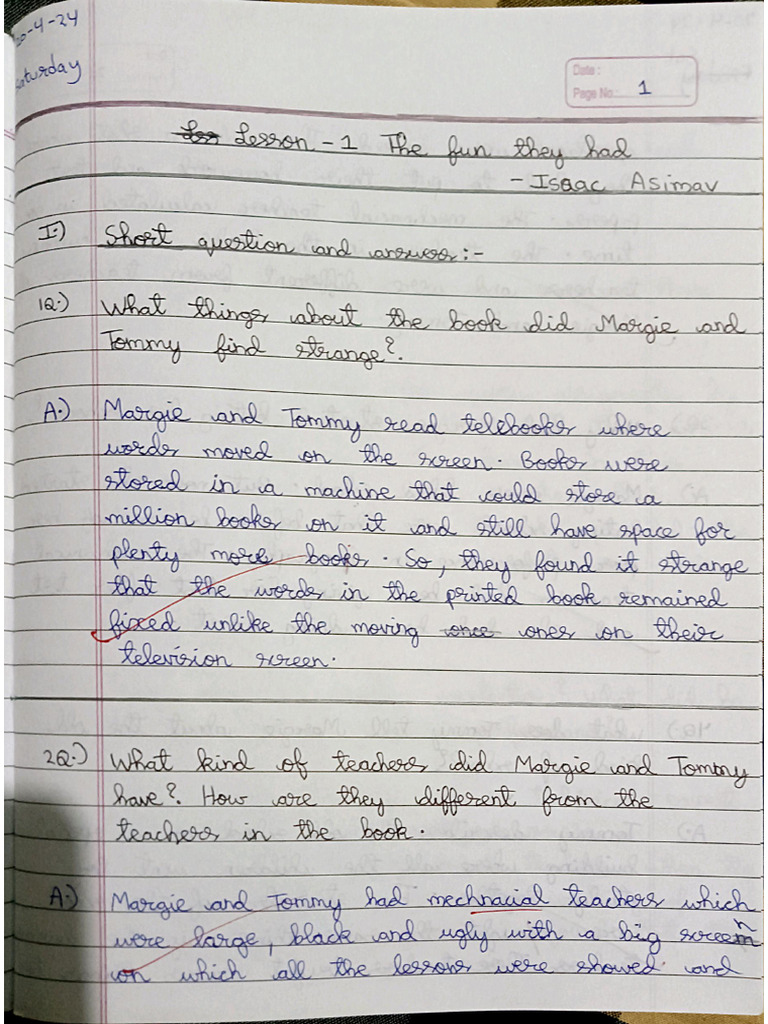 20-4-24
Saturday
Date :
Page No: 1
Lesson - 1 The fun they had
- Isaac Asimav
I.) Short question and answer:-
1Q.) What things about the book did Margie and
Tommy find strange?.
A.) Margie and Tommy read telebooks where
words moved on the screen. Books were
stored in a machine that could store a
million books on it and still have space for
plenty more books. So, they found it strange
that the words in the printed book remained
fixed unlike the moving once ones on their
television screen.
2Q.) What kind of teachers did Margie and Tommy
have? How are they different from the
teachers in the book.
A.) Margie and Tommy had mechnacial teachers which
were large, black and ugly with a big screen
on which all the lessons were showed and